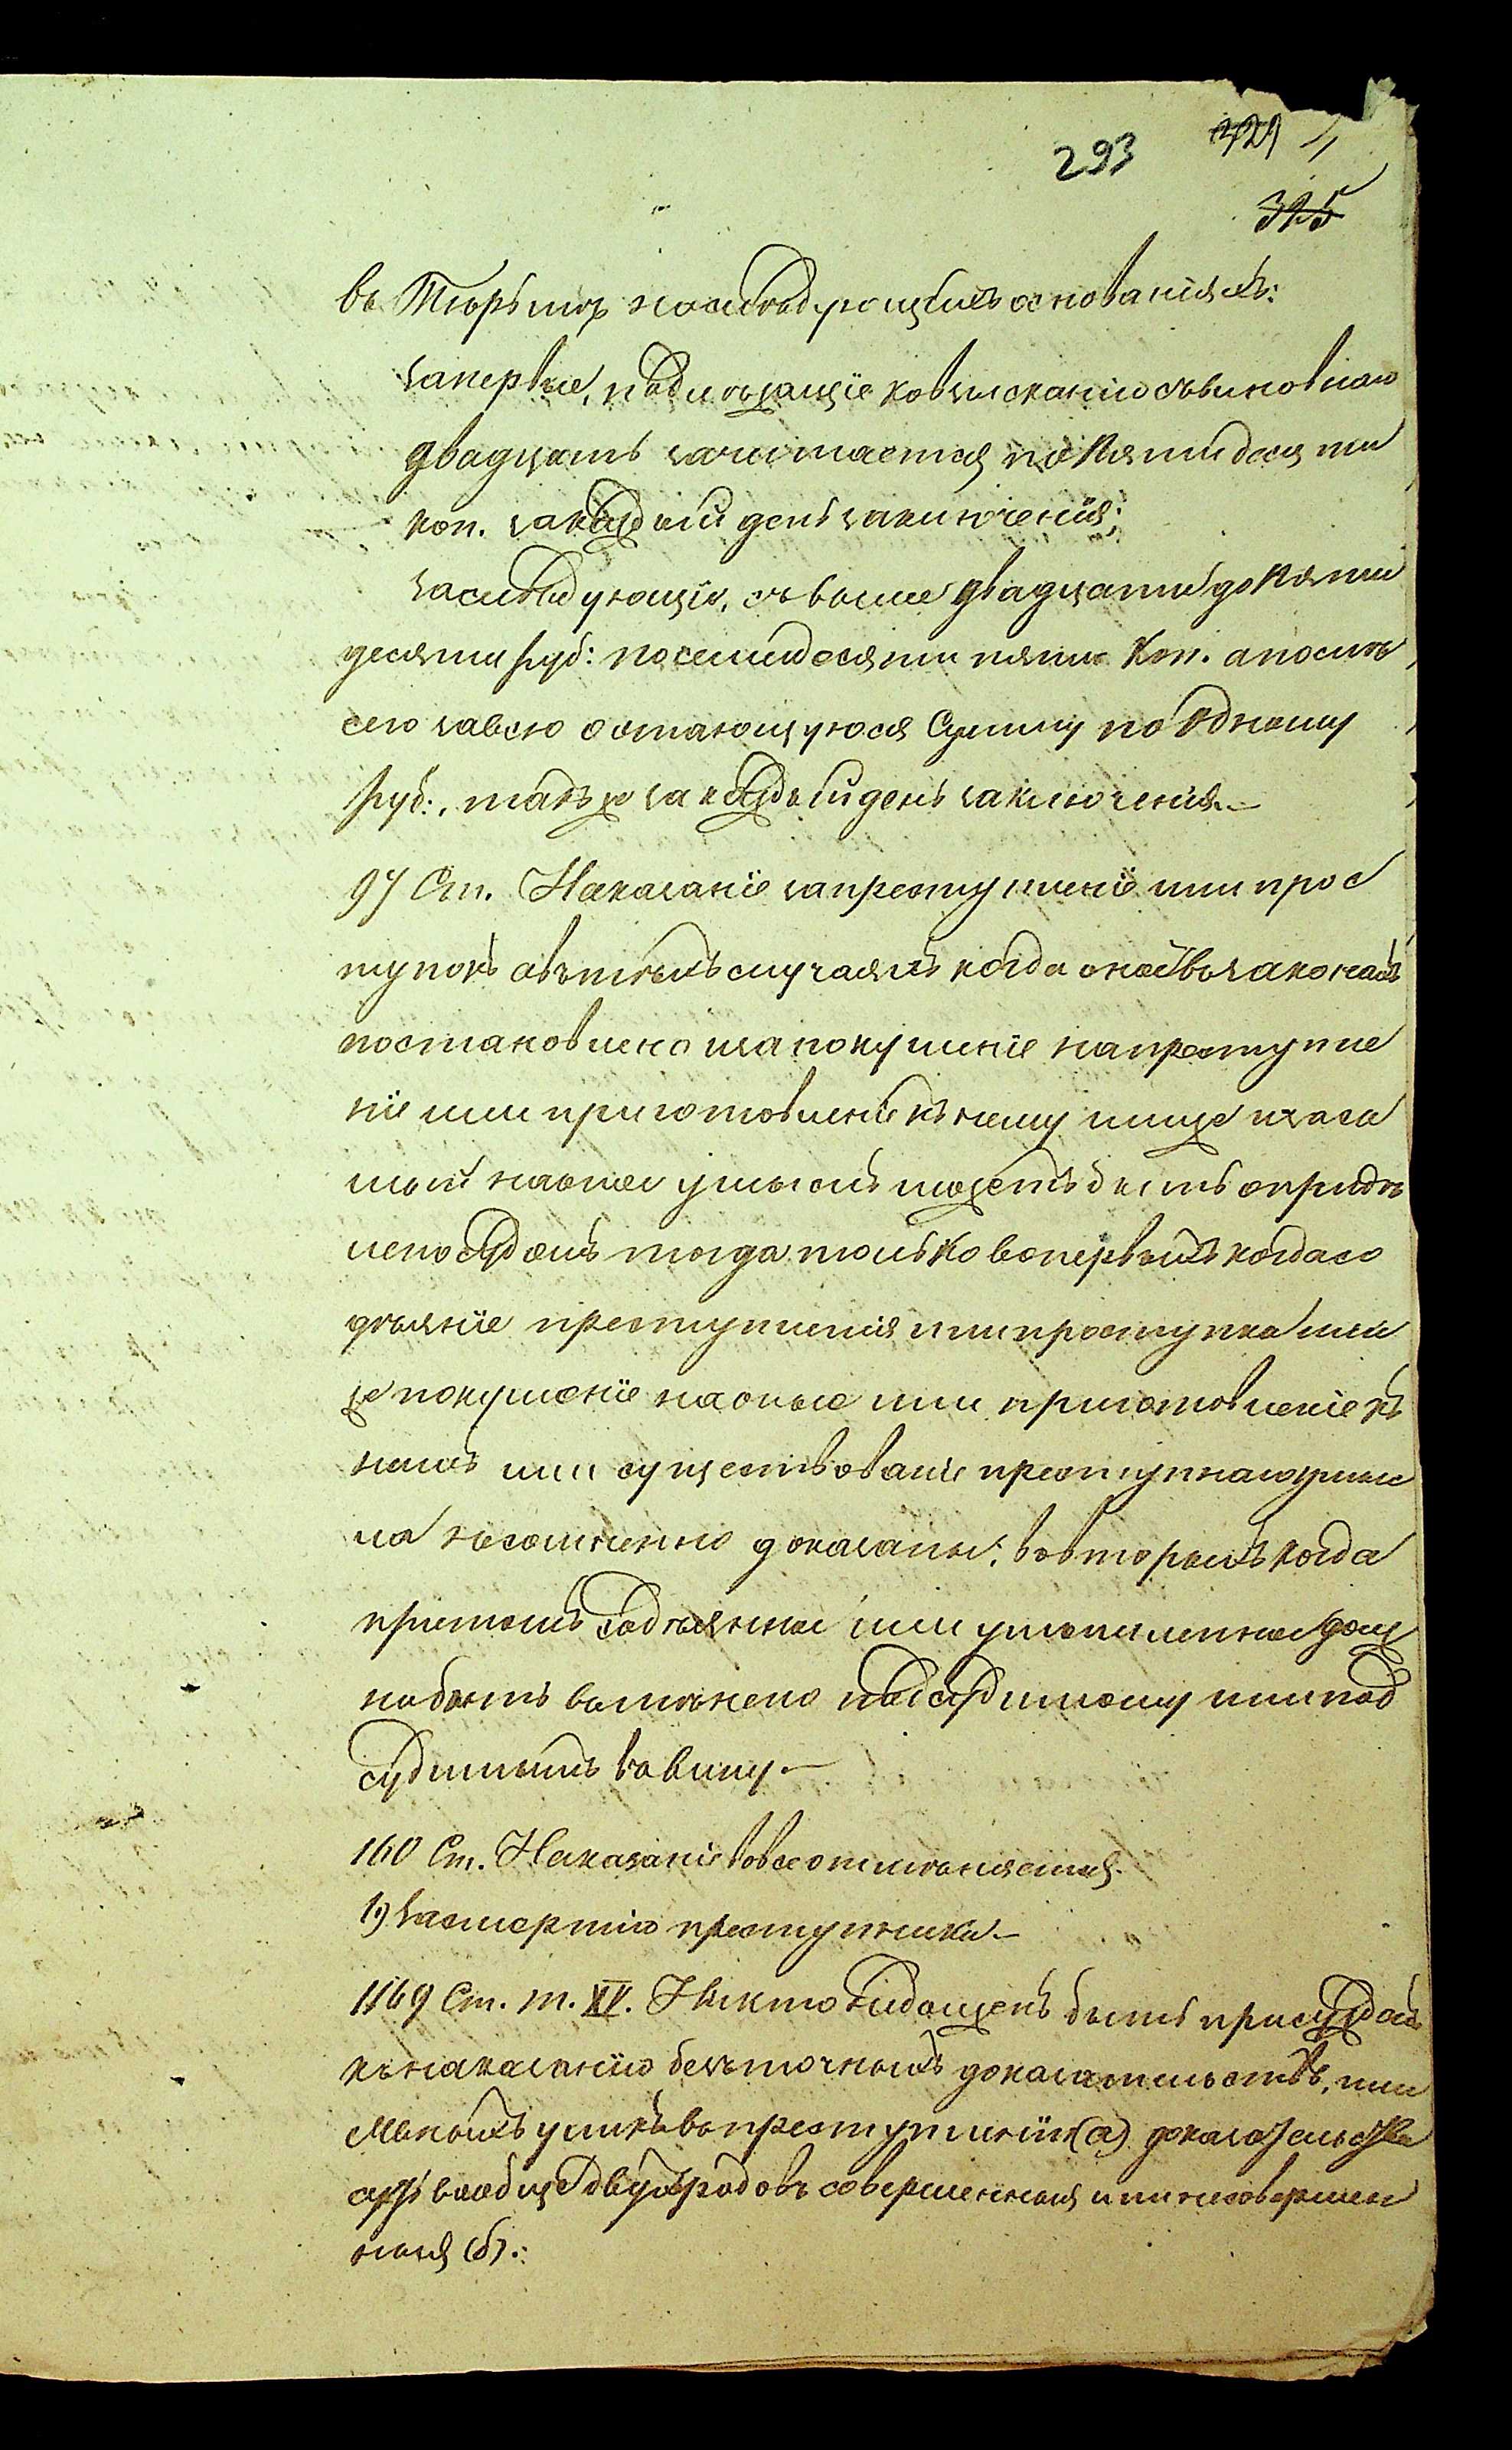 293
329
315
въ Тюрьмѣ наслѣдующихъ основаніяхъ:
заперъвые, подлежащіе ковзысканію съвиновнаго
двадцать зачитается по пятидесяти
коп. закаждый день заключенія;
заслѣдующіе, съвыше двадцати до пяти
десяти руб: посемидесяти пяти коп. апослѣ
сего завсю остающуюся сумму по одному
руб:, такъже закаждый день заключенія.—
97 Ст. Наказаніе запреступленіе или прос
тупокъ авътѣхъ случаяхъ когда оноевъзаконахъ
постановлено изапокушеніе напреступле
ніе или приготовленіе къ нему илиже изаса
мый наоное умыселъ можетъ быть опредѣ
лено судомъ тогда только вопервыхъ когда со
дѣяніе преступленія или проступка или
же покушеніе наоные или приготовленіе къ
нимъ или существованіе преступнагоумыс
ла несомненно доказаны; вовторыхъ когда
притомъ содѣянное или умышленное долж
нобыть вмѣнено подсудимому или под
судимымъ въвину.—
160 Ст. Наказаніе вовсе отмѣняется.
1) засмертію преступника.—
1169 Ст. т. XV. Никто недолженъ быть присужденъ
къ наказанію безъточныхъ доказательствъ, или
явныхъ уликъ въпреступленіи (а) доказательства
суть вообще двухъ родовъ совершенныя или несовершен
ныя (б).: